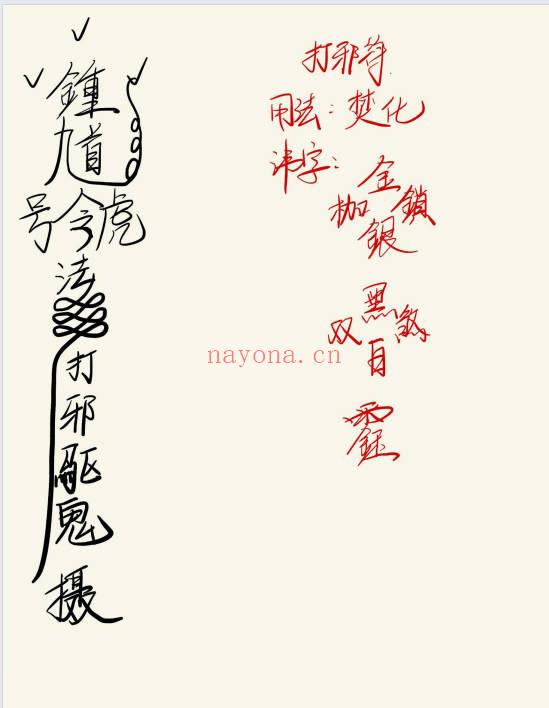 鍾
馗
号令虎
法
打
邪
驅
鬼
摄
打邪符
用法：焚化
讳字：
金
枷 鎖
銀
黑
双 煞
目
nayona.cn